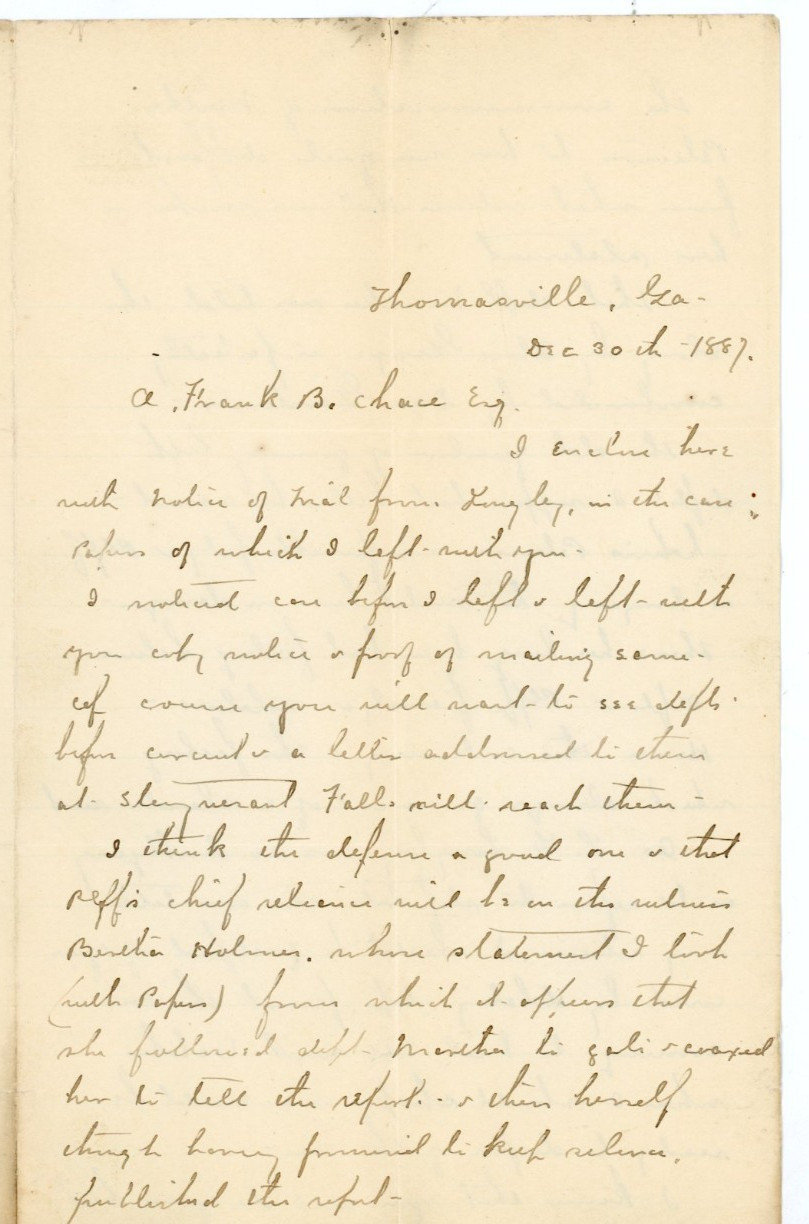 Thomasville, Ga-
Dec 30th -1887.
A. Frank B. Chace Esq.
I enclose here
with Notice of Trial from Longley, in the case
Papers of which I left with you-
I noticed case before I left & left with
you copy notice & proof of mailing same-
Of course you will want to see defts
before circuit & a letter addressed to them
at Falls will reach them-
I think the defense a good one & that
Plff's chief reliance will be on the witness
Bertha Holmes. whose statement I took
(with Papers) from which it appears that
she followed deft Martha to gate & coaxed
her to tell the report- & then herself
though having promised to keep silence,
published the report-